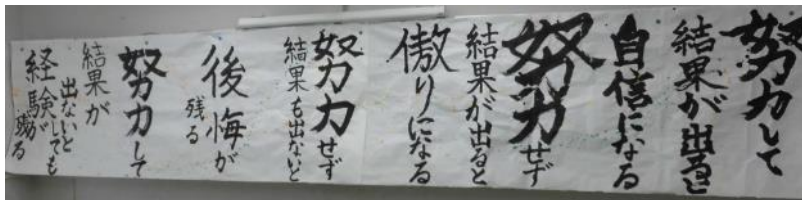 努力して
結果が出ると
自信になる
努力せず
結果が出ると
傲りになる
努力せず
結果も出ないと
後悔が
残る
努力して
結果が
出ないと
しても
経験が
残る